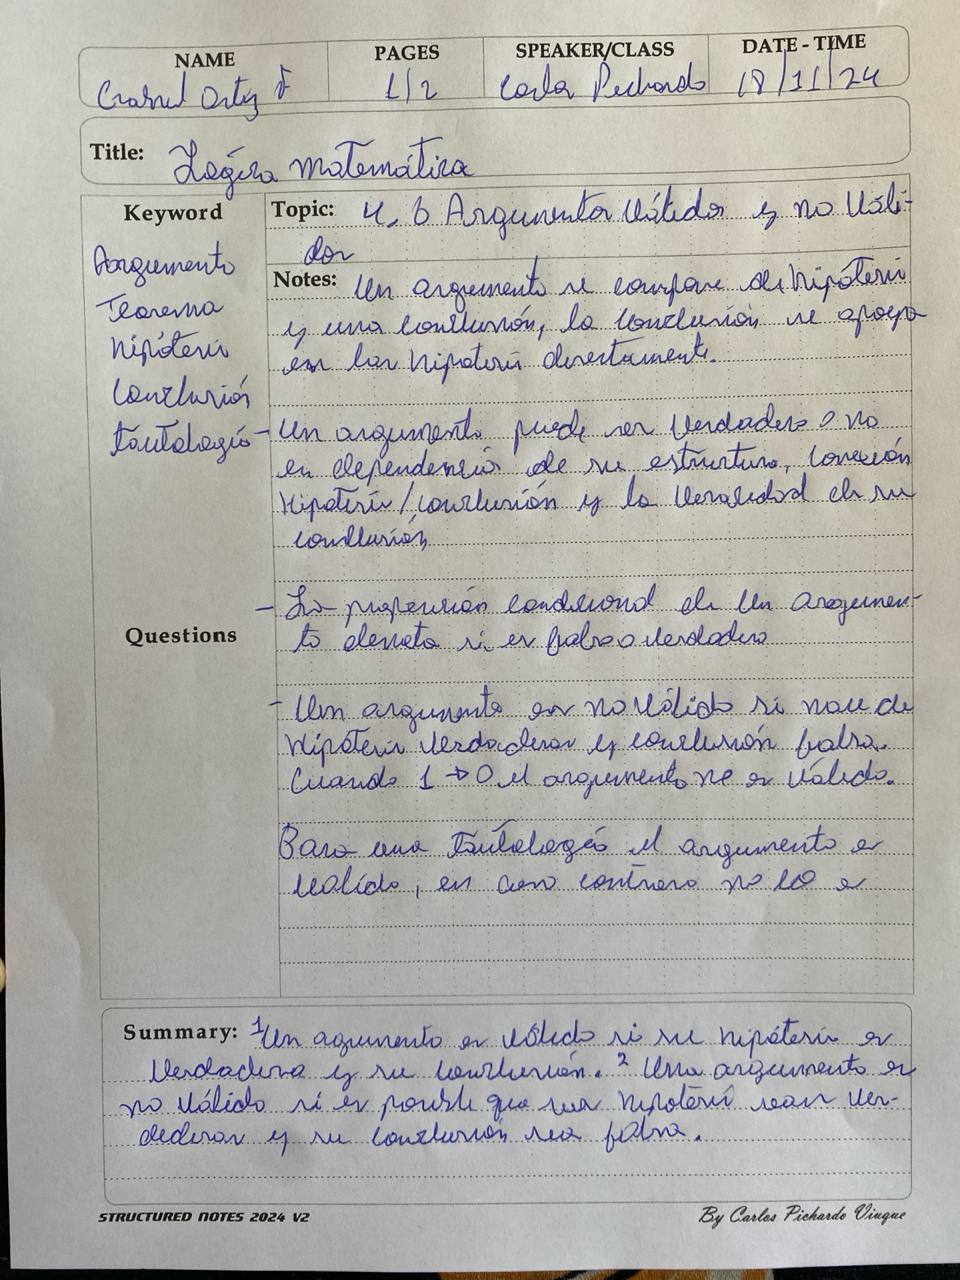 NAME PAGES SPEAKER/CLASS DATE - TIME
Ortiz 1/2 18/11/24
Title: Lógica matemática
Keyword Topic: 4.6 Argumentos Válidos y no Váli-
dos
Argumento
Notes: Un argumento se compone de hipótesis
Teorema y una conclusión, la conclusión se apoya
hipótesis en las hipotesis directamente.
Conclusión
tautología - Un argumento puede ser Verdadero o no
en dependencia de su estructura, conexión
Hipótesis/conclusión y la Veracidad de su
conclusión
- La proposición condicional de Un argumen-
Questions to denota si es falso o Verdadero
- Un argumento es no Válido si nace de
Hipótesis Verdaderas y conclusión falsa.
Cuando 1 → 0 el argumento no es Válido.
Para una Tautología el argumento es
Valido, en caso contrario no lo es
Summary: 1 Un agumento es Válido si su hipótesis es
Verdadera y su conclusión. 2 Un argumento es
no Válido si es posible que sus hipotesis sean Ver-
daderas y su conclusión sea falsa.
STRUCTURED NOTES 2024 V2 By Carlos Pichardo Viuque